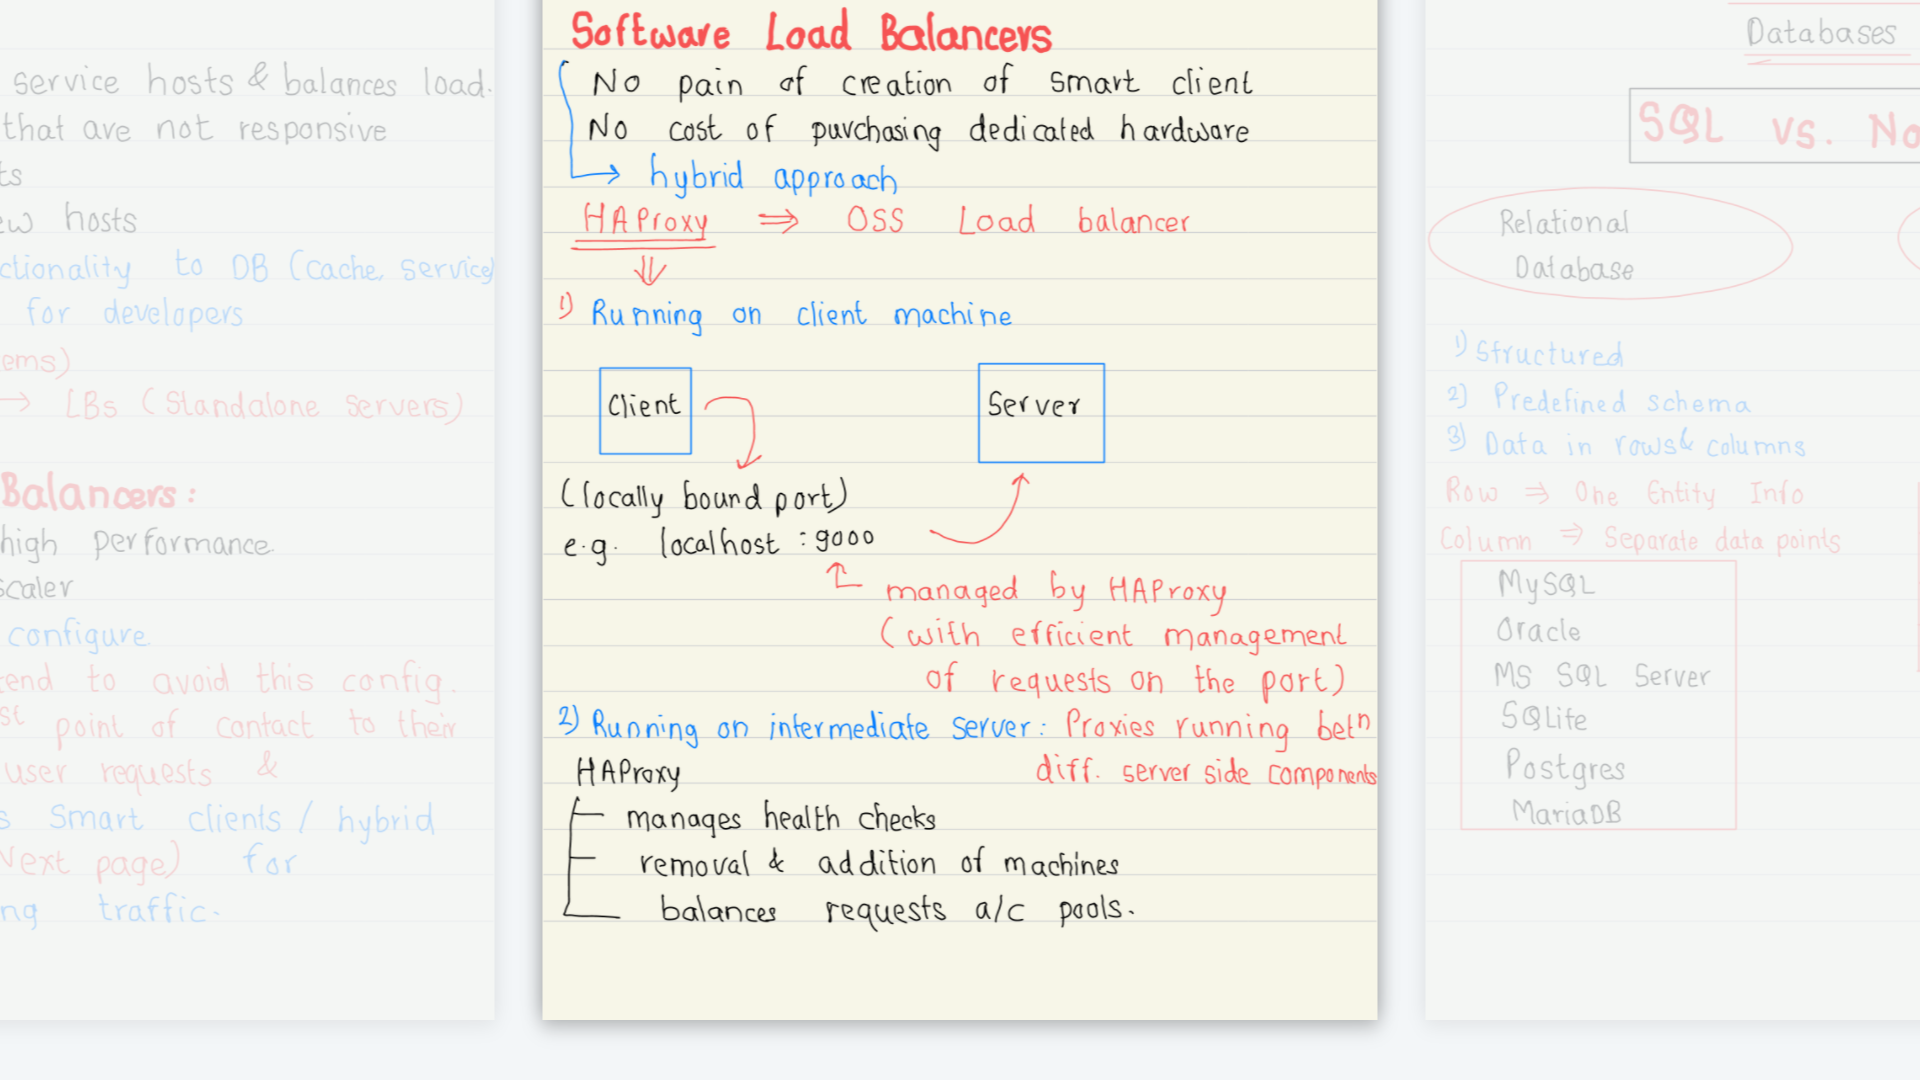 service hosts & balances load.
that are not responsive
ts
ew hosts
ctionality to DB (cache, service)
for developers
ems)
→ LBs (Standalone servers)
Balancers:
high performance
scaler
configure
tend to avoid this config.
st point of contact to their
user requests &
s Smart clients / hybrid
Next page) for
ng traffic.
Software Load Balancers
No pain of creation of smart client
No cost of purchasing dedicated hardware
→ hybrid approach
HAProxy ⇒ OSS Load balancer
1) Running on client machine
Client
Server
(locally bound port)
e.g. localhost :9000
managed by HAProxy
(with efficient management
of requests on the port)
2) Running on intermediate server: Proxies running betn
diff. server side components
HAProxy
manages health checks
removal & addition of machines
balances requests a/c pools.
Databases
SQL vs. No
Relational
Database
1) Structured
2) Predefined schema
3) Data in rows & columns
Row ⇒ One Entity Info
Column ⇒ Separate data points
MySQL
Oracle
MS SQL Server
SQLite
Postgres
MariaDB